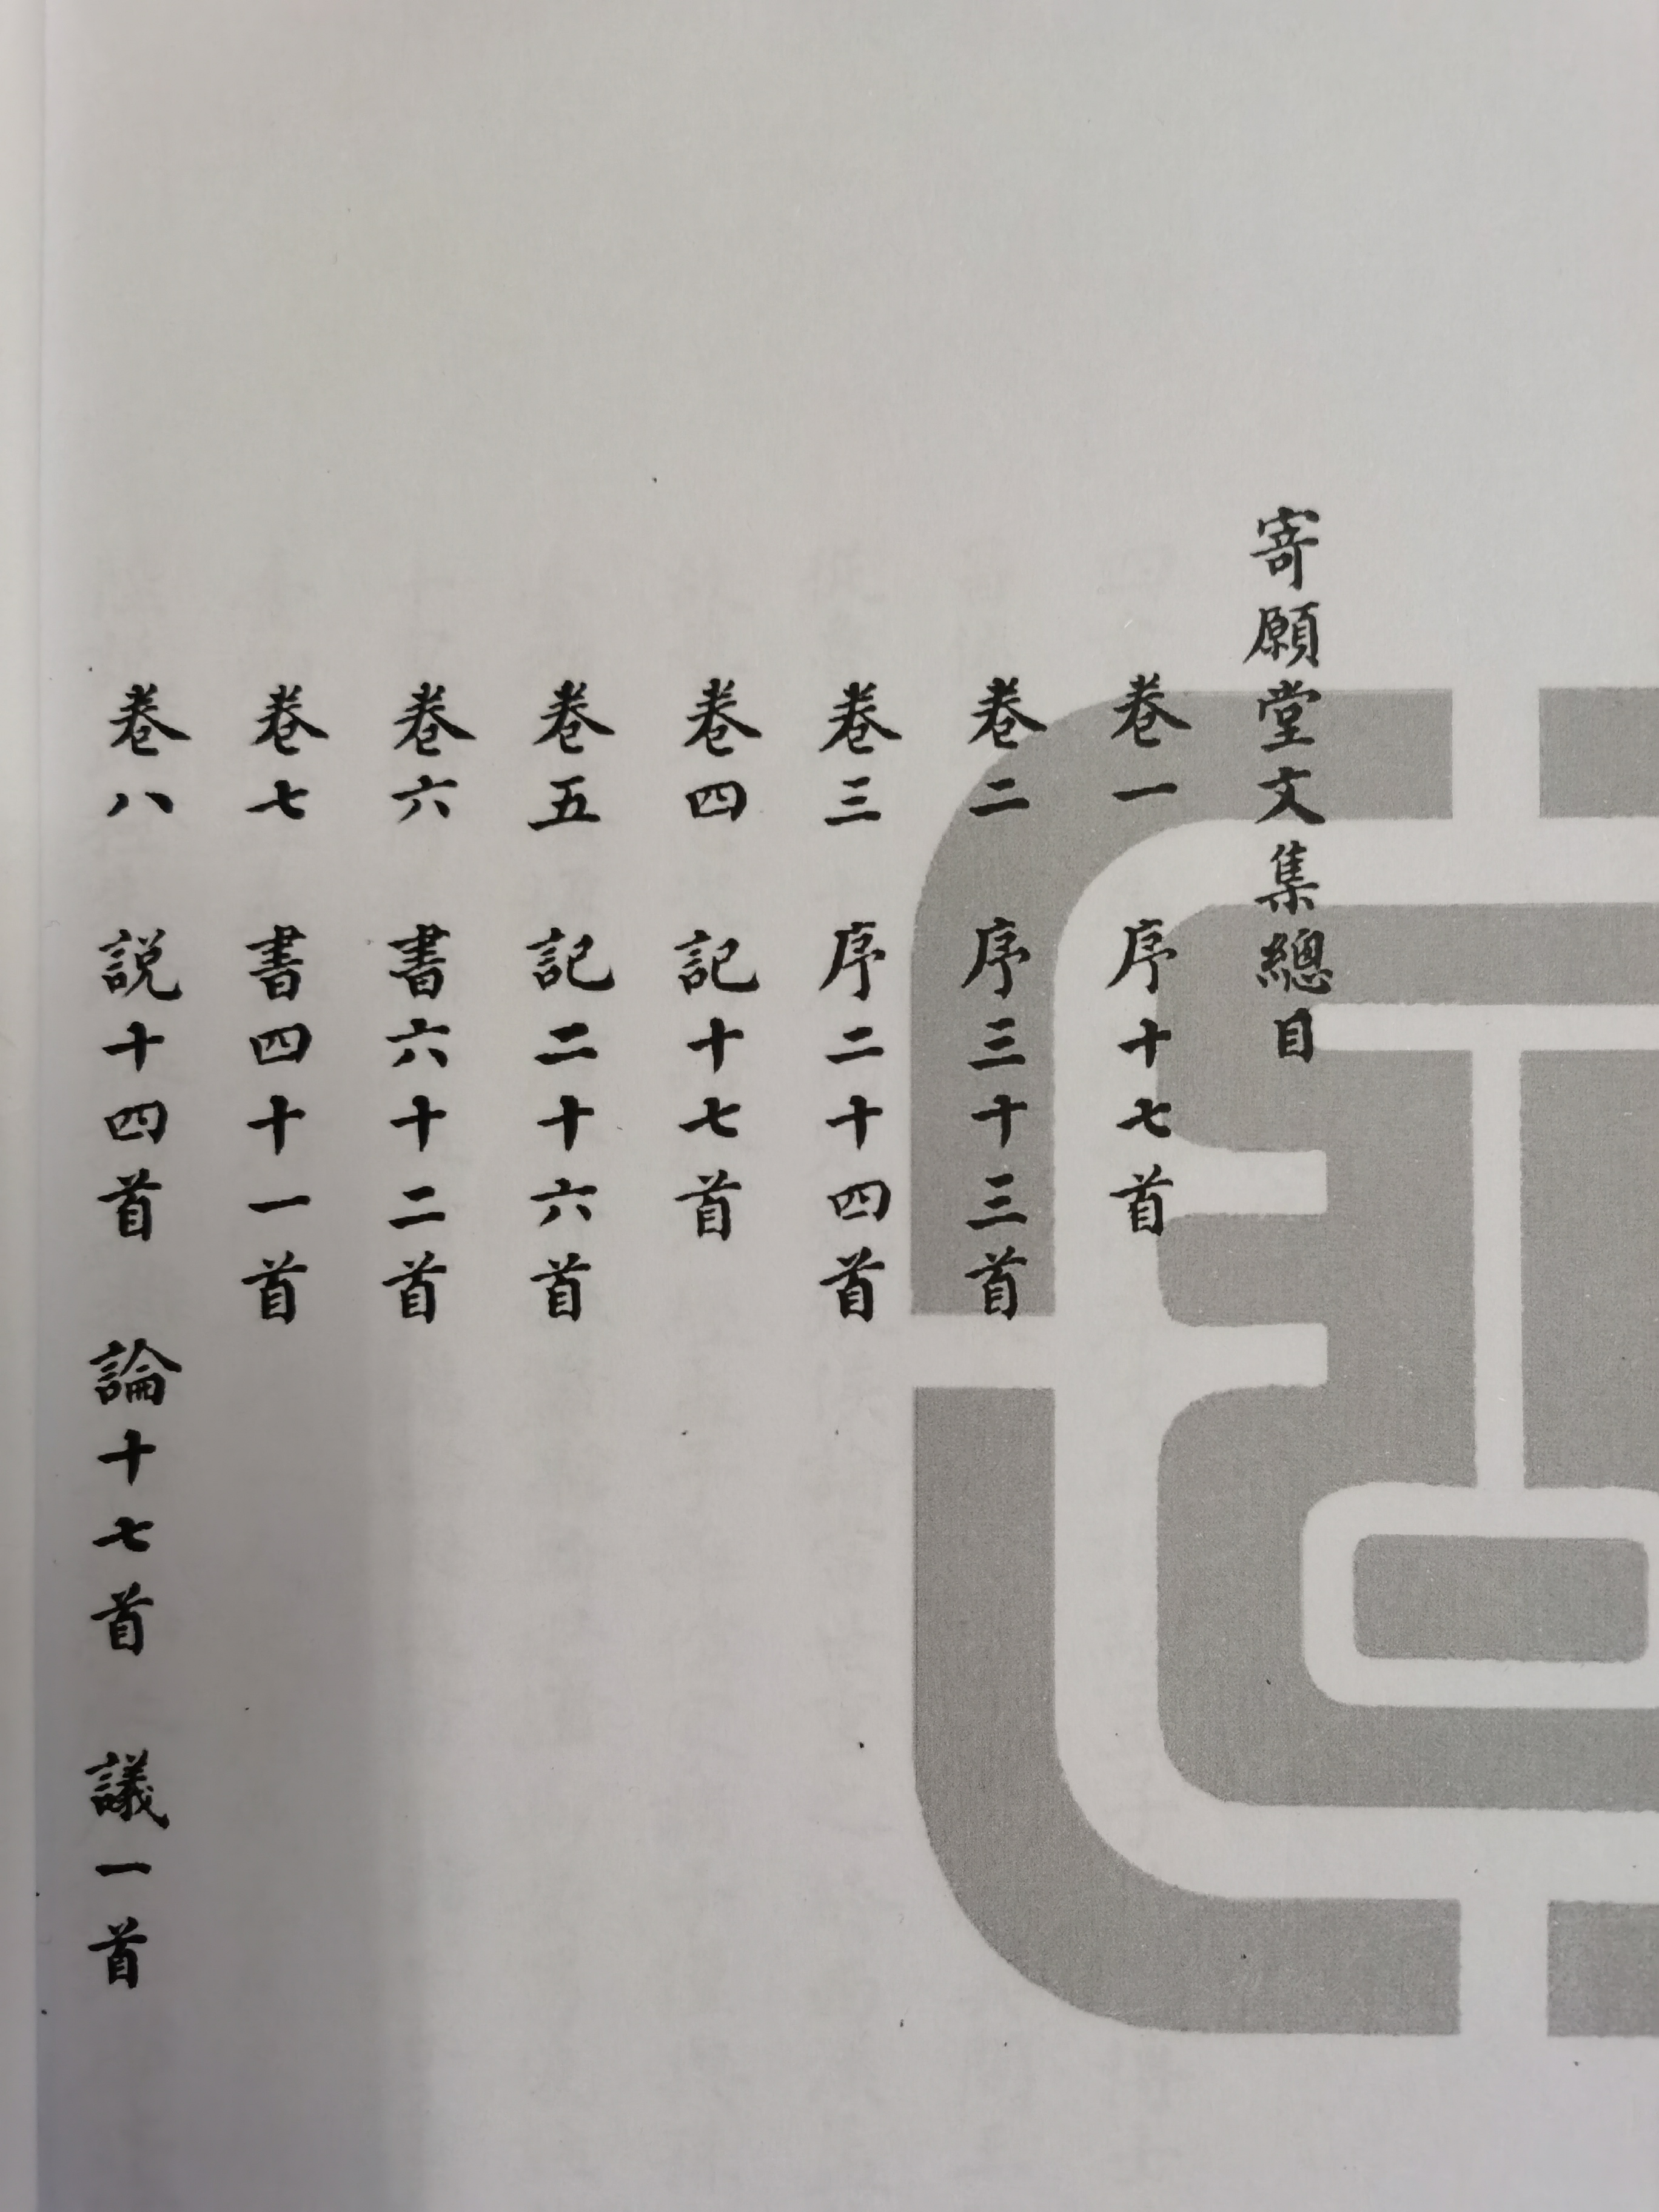 寄願堂文集總目
卷一　序十七首
卷二　序三十三首
卷三　序二十四首
卷四　記十七首
卷五　記二十六首
卷六　書六十二首
卷七　書四十一首
卷八　説十四首　論十七首　議一首